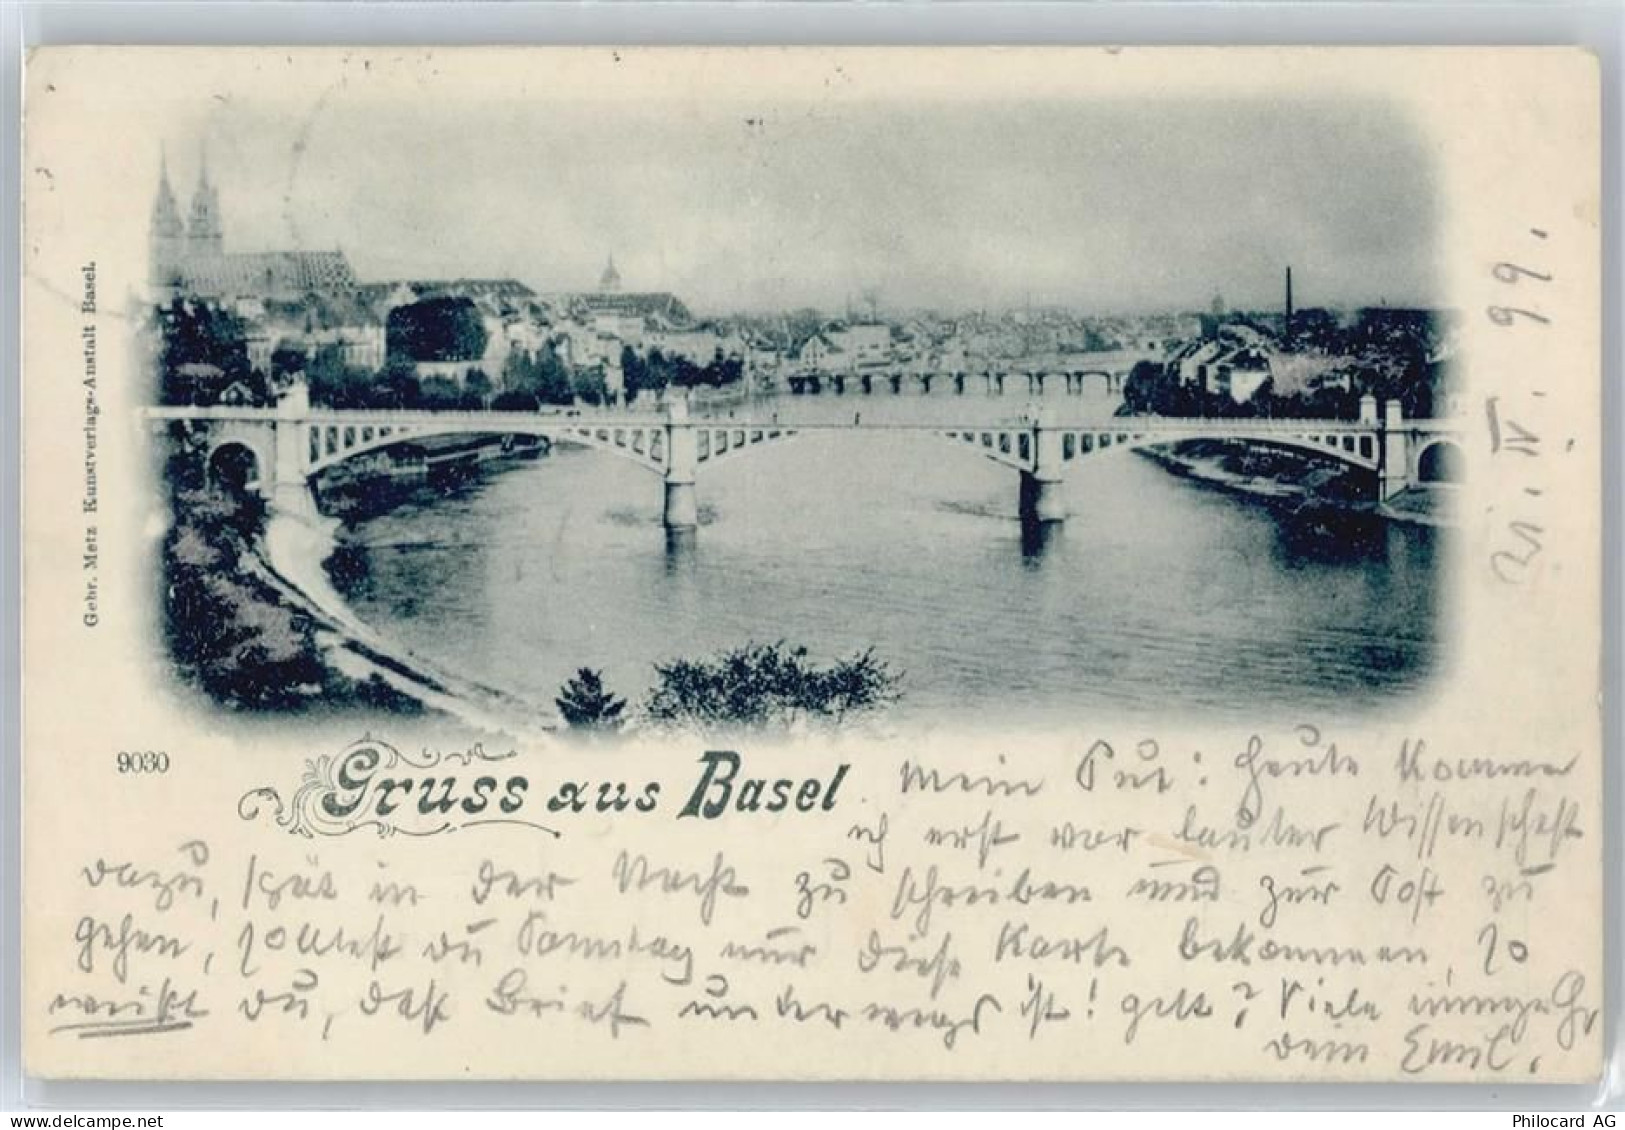 Gebr. Metz Kunstverlags-Anstalt Basel.
21. IV. 99.
9030
Gruss aus Basel
Mein Put: Heute komme
ich erst vor lauter Wissenschaft
dazu, spät in der Nacht zu schreiben und zur Post zu
gehen, solltest du Sonntag nur diese Karte bekommen, so
weißt du, daß Brief unterwegs ist! gelt? Viele innige Gr
dein Emil.
www.delcampe.net
Philocard AG